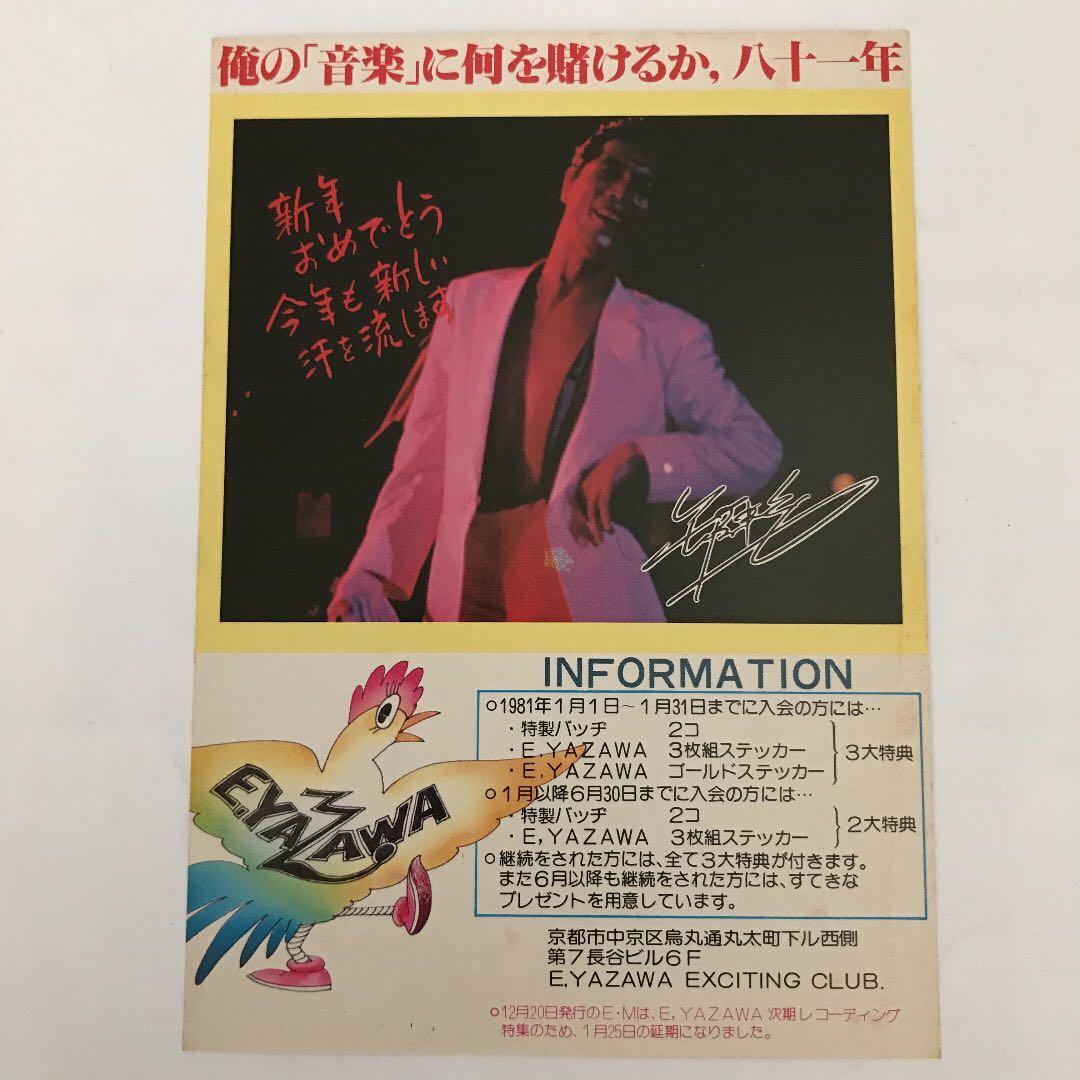 俺の「音楽」に何を賭けるか，八十一年
新年
おめでとう
今年も新しい
汗を流します
INFORMATION
○1981年1月1日～1月31日までに入会の方には…
・特製バッヂ　2コ
・E,YAZAWA　3枚組ステッカー
・E,YAZAWA　ゴールドステッカー
3大特典
○1月以降6月30日までに入会の方には…
・特製バッヂ　2コ
・E,YAZAWA　3枚組ステッカー
2大特典
○継続をされた方には、全て3大特典が付きます。
また6月以降も継続をされた方には、すてきな
プレゼントを用意しています。
E.YAZAWA
京都市中京区烏丸通丸太町下ル西側
第7長谷ビル6F
E,YAZAWA EXCITING CLUB.
○12月20日発行のE・Mは、E,YAZAWA次期レコーディング
特集のため、1月25日の延期になりました。